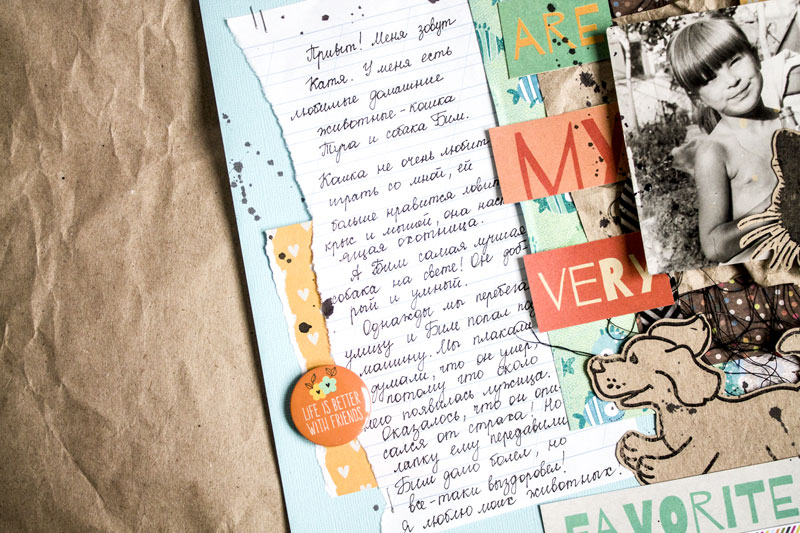 Привет! Меня зовут
Катя. У меня есть
любимые домашние
животные - кошка
Туча и собака Бим.
Кошка не очень любит
играть со мной, ей
больше нравится ловит
крыс и мышей, она наст
ящая охотница.
А Бим самая лучшая
собака на свете! Он доб-
рый и умный.
Однажды мы перебега
улицу и Бим попал под
машину. Мы плакали
думали, что он умер,
потому что около
него появилась лужица.
Оказалось, что он опи-
сался от страха! Но
лапку ему передавили
Бим долго болел, но
всё-таки выздоровел!
Я люблю моих животных.
LIFE IS BETTER
WITH FRIENDS
ARE
MY
VERY
FAVORITE